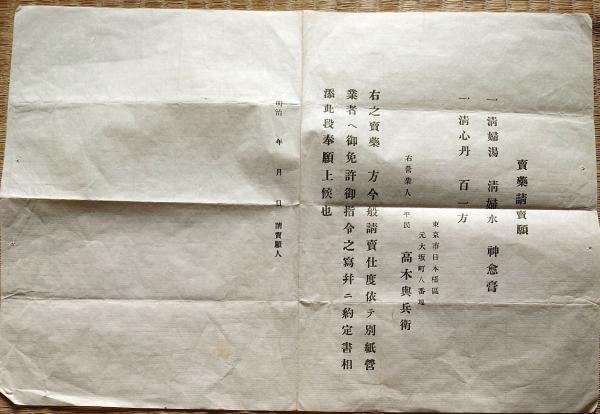 賣藥請賣願
一清婦湯 清婦水 神愈膏
一清心丹 百一方
東京市日本橋區
元大坂町八番地
右營業人 平民 高木與兵衛
右之賣藥 方今般請賣仕度依テ別紙營
業者ヘ御免許御指令之寫幷ニ約定書相
添此段奉願上候也
明治 年 月 日 請賣願人